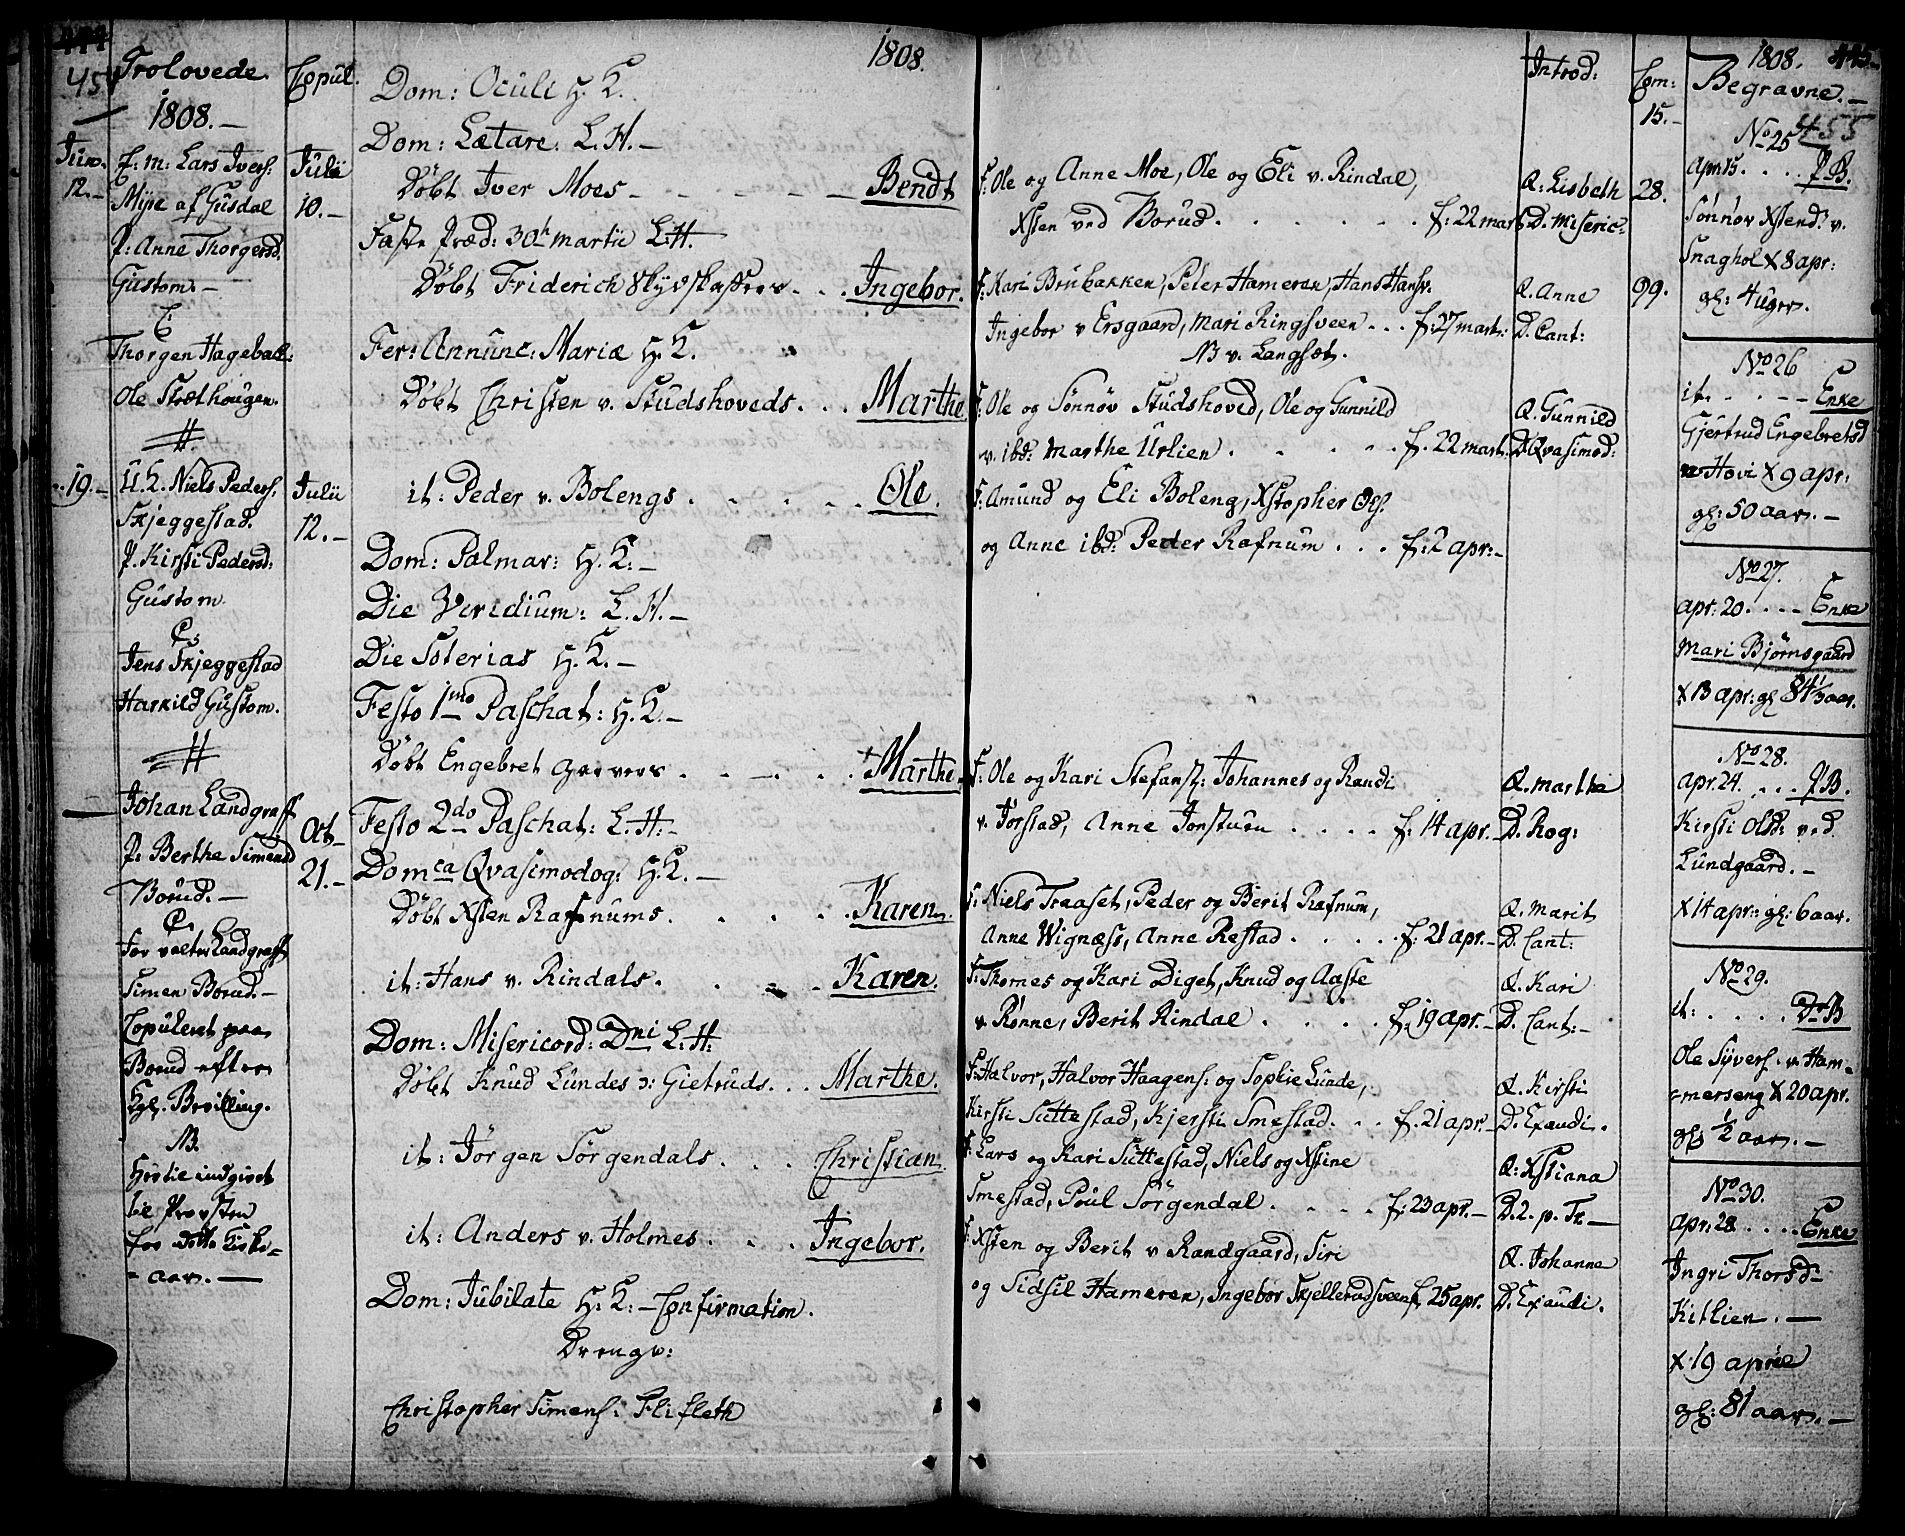 454
Trolovede
1808.-
Jun. 12.-
E: m: Lars Ivers:
Myre af Gusdal
P: Anne Thorgersd.
Gustom.-
C
Thorgen Hagebak:
Ole Stræthougen.
#
19.-
U.K. Niels Peders.
Skjeggestad.
P. Kirsti Pedersd:
Gustom.
Cs
Jens Skjeggestad
Harkild Gustom.
#
Johan Landgraff
P: Berthe Simensd
Borud.-
C.
Forvalter Landgraff
Simen Borud.-
Copuleret paa
Borud efter
Kgl. Bevilling.
NB.
til Provsten
for dette Kirke=
=aar.-
Copul.
Julii
10.-
Julii
12.-
Oct.
21.-
1808.
Dom: Oculi H.K.
Dom: Lætare: L.H.-
Døbt Iver Moes - - - - Bendt
Faste Præd: 30th martii L.H.
Døbt Friderich Skydskaffers. . . Ingebor.
Fer: Annunc: Mariæ H.K.
Døbt Christen v. Studshoveds. . . Marthe
it: Peder v. Bolengs . . . . . Ole.
Dom: Palmar: H.K:-
Die Viridium: L.H.-
Die Soterias H.K.-
Festo 1mo Paschat: H.K-
Døbt Engebret Garvers . . . . . +Marthe
Festo 2do Paschat: L.H:-
Domca Qvasimodog: H.K.-
Døbt Xsten Rafnums . . . . . Karen.
it: Hans v. Rindals. . . . Karen.
Dom: Misericord: Dni L:H:
Døbt Knud Lundes ɔ: Gietruds. . . Marthe.
it: Jörgen Sörgendals . . . Christian.
it: Anders v. Holmes. . . . Ingebor.
Dom: Jubilate H: K:- Confirmation.
Drenge:
Christopher Simens: Flifleth
F: Ole og Anne Moe, Ole og Eli v. Rindal,
Xsten ved Borud. . . . . . . f: 22 mart
F: Kari Brubakken, Peter Hameren, Hans Hans.
Ingebor v Ersgaard, Mari Ringsveen . . . f: 27 mart:
NB v. Langsæt.
F: Ole og Sönnöv Studshoved, Ole og Gunnild
v. ibd: Marthe Urlien . . . . . f. 22 mart.
F: Amund og Eli Boleng, Xstopher Ols.
og Anne ibd: Peder Rafnum . . . f: 2 apr:-
F: Ole og Kari Stefanst: Johannes og Randi
v. Jorstad, Anne Jonstuen . . . . f: 14 apr.-
F: Niels Traaset, Peder og Berit Rafnum,
Anne Wignæss, Anne Restad . . . . . f: 21 apr.-
F: Thomes og Kari Diget, Knud og Aaste
v Rönne, Berit Rindal . . . . f: 19 apr.-
F: Halvor, Halvor Haagens: og Sophie Lunde,
Kirsti Suttestad, Kjersti Smestad. . . f. 21 apr.-
F: Lars og Kari Suttestad, Niels og Xstine
Smestad, Poul Sörgendal . . . . f: 23 apr.-
F: Xsten og Berit v Randgaard, Siri
og Sidsil Hameren, Ingebor Skjellerudsveen f. 25 apr.
Introd:
Q: Lisbeth
D. Miseric:
Q. Anne
D. Cant:
Q. Gunnild
D. Qvasimod:
Q. marthe
D. Rog:
Q. Marit
D. Cant:
Q. Kari
D. Cant:-
Q. Kirsti
D. Exaudi.
Q: Xstiana
D. 2. p. Tr.-
Q. Johanne
D. Exaudi.
Com:
15.-
28.
99.
1808.
Begravne.-
455
No 25
Apr: 15. . . . P.B.
Sönnöv Xstensd: v.
Snaghol X 8 apr:
gl: 4 uger.
No 26
it. - - - - Enke
Gjertrud Engebretsd
v Hovi X 9 apr:
gl: 50 aar.-
No 27.
apr: 20 . . . . Enke
Mari Bjørnsgaard
X 13 apr: gl 84 1/3 aar.
No 28.
apr. 24. . . . P.B.
Kirsti Olsd: ved
Lundgaard.-
X 14 apr: gl: 6 aar.
No 29.
it: . . . . D:B
Ole Syvers. v. Ham-
=merseng X 20 apr.
gl: 1/2 aar.-
No 30.
apr. 28 . . . . Enke
Ingri Thorsd:
Kitlien.-
X 19 aprile
gl: 81 aar.-